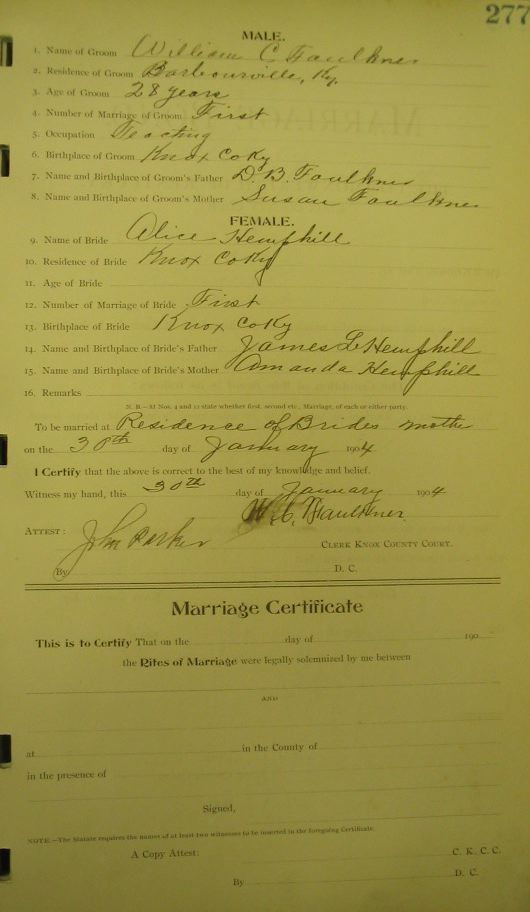 277
MALE.
1. Name of Groom William C Faulkner
2. Residence of Groom Barbourville, Ky.
3. Age of Groom 28 years
4. Number of Marriage of Groom First
5. Occupation Teaching
6. Birthplace of Groom Knox Co Ky
7. Name and Birthplace of Groom's Father D. B. Faulkner
8. Name and Birthplace of Groom's Mother Susan Faulkner
FEMALE.
9. Name of Bride Alice Hemphill
10. Residence of Bride Knox Co Ky
11. Age of Bride
12. Number of Marriage of Bride First
13. Birthplace of Bride Knox Co Ky
14. Name and Birthplace of Bride's Father James L Hemphill
15. Name and Birthplace of Bride's Mother Amanda Hemphill
16. Remarks
N. B.—At Nos. 4 and 12 state whether first, second etc., Marriage, of each or either party.
To be married at Residence of Brides mother
on the 30th day of January 1904
I Certify that the above is correct to the best of my knowledge and belief.
Witness my hand, this 30th day of January 1904
W. C. Faulkner
ATTEST: John Parker
CLERK KNOX COUNTY COURT.
By D. C.
Marriage Certificate
This is to Certify That on the day of 190
the Rites of Marriage were legally solemnized by me between
AND
at in the County of
in the presence of
Signed,
NOTE.—The Statute requires the names of at least two witnesses to be inserted in the foregoing Certificate
A Copy Attest: C. K. C. C.
By D. C.